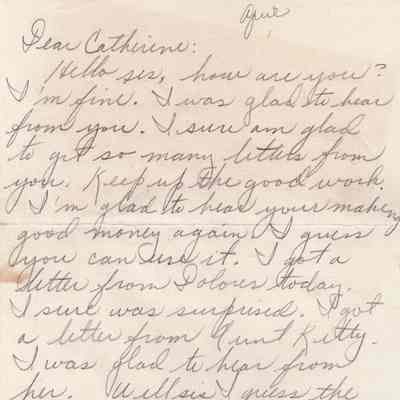 April
Dear Catherine:
Hello sis, how are you?
I'm fine. I was glad to hear
from you. I sure am glad
to get so many letters from
you. Keep up the good work.
I'm glad to hear your making
good money again I guess
you can use it. I got a
letter from Dolores today.
I sure was surprised. I got
a letter from Aunt Kitty.
I was glad to hear from
her. Well sis I guess the